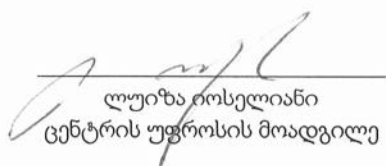 ლუიზა იოსელიანი
ცენტრის უფროსის მოადგილე